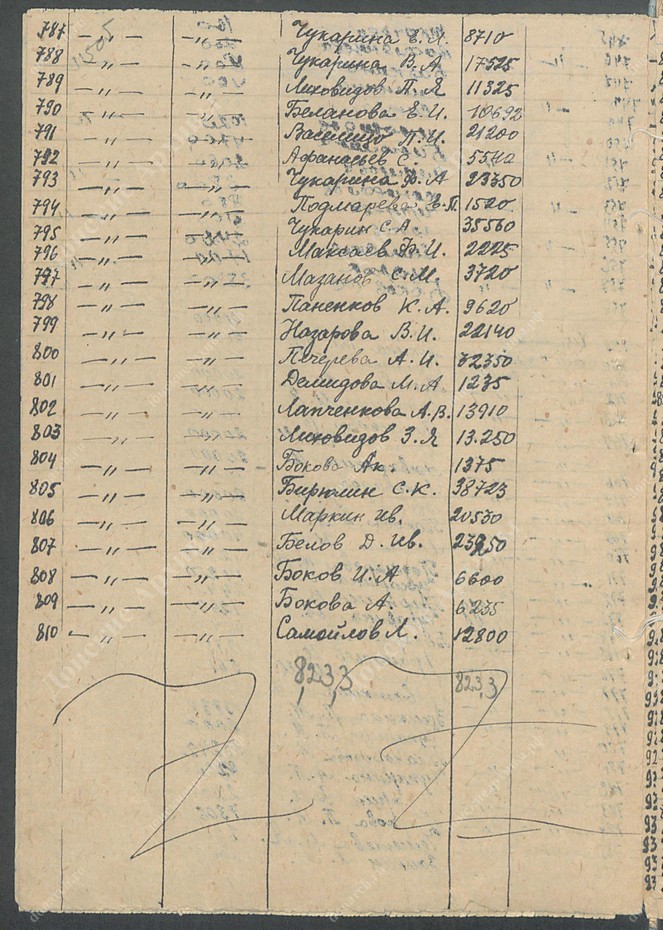 787 —"— —"— Чукарина Е.Я. 8710
788 —"— —"— Чукарина В.А 17525
789 —"— —"— Лиховидов П.Я 11325
790 —"— —"— Беланова Е.И. 10692
791 —"— —"— П.И. 21200
792 —"— —"— Афанасьев С. 5540
793 —"— —"— Чукарина Ф.А 23350
794 —"— —"— Подмарева Е.П. 1520
795 —"— —"— Чукарин С.А. 35560
796 —"— —"— Максаев И. 2225
797 —"— —"— Мазанов С.М. 3720
798 —"— —"— Паненков К.А. 9620
799 —"— —"— Назарова В.И. 22140
800 —"— —"— Печерева А.И. 32350
801 —"— —"— Демидова М.А 1235
802 —"— —"— Лапченкова А.В. 13910
803 —"— —"— Лиховидов З.Я 13.250
804 —"— —"— Бокова Ак. 1375
805 —"— —"— Бирюлин С.К. 38723
806 —"— —"— Маркин Ив. 20530
807 —"— —"— Белов Д.Ив. 23950
808 —"— —"— Боков И.А 6600
809 —"— —"— Бокова А. 6235
810 —"— —"— Самойлов Л. 12800
8233 8233